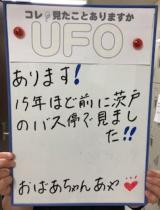 コレ見たことありますか
UFO
あります!
15年ほど前に茨戸
のバス停で見まし
た!!
おばあちゃんあや